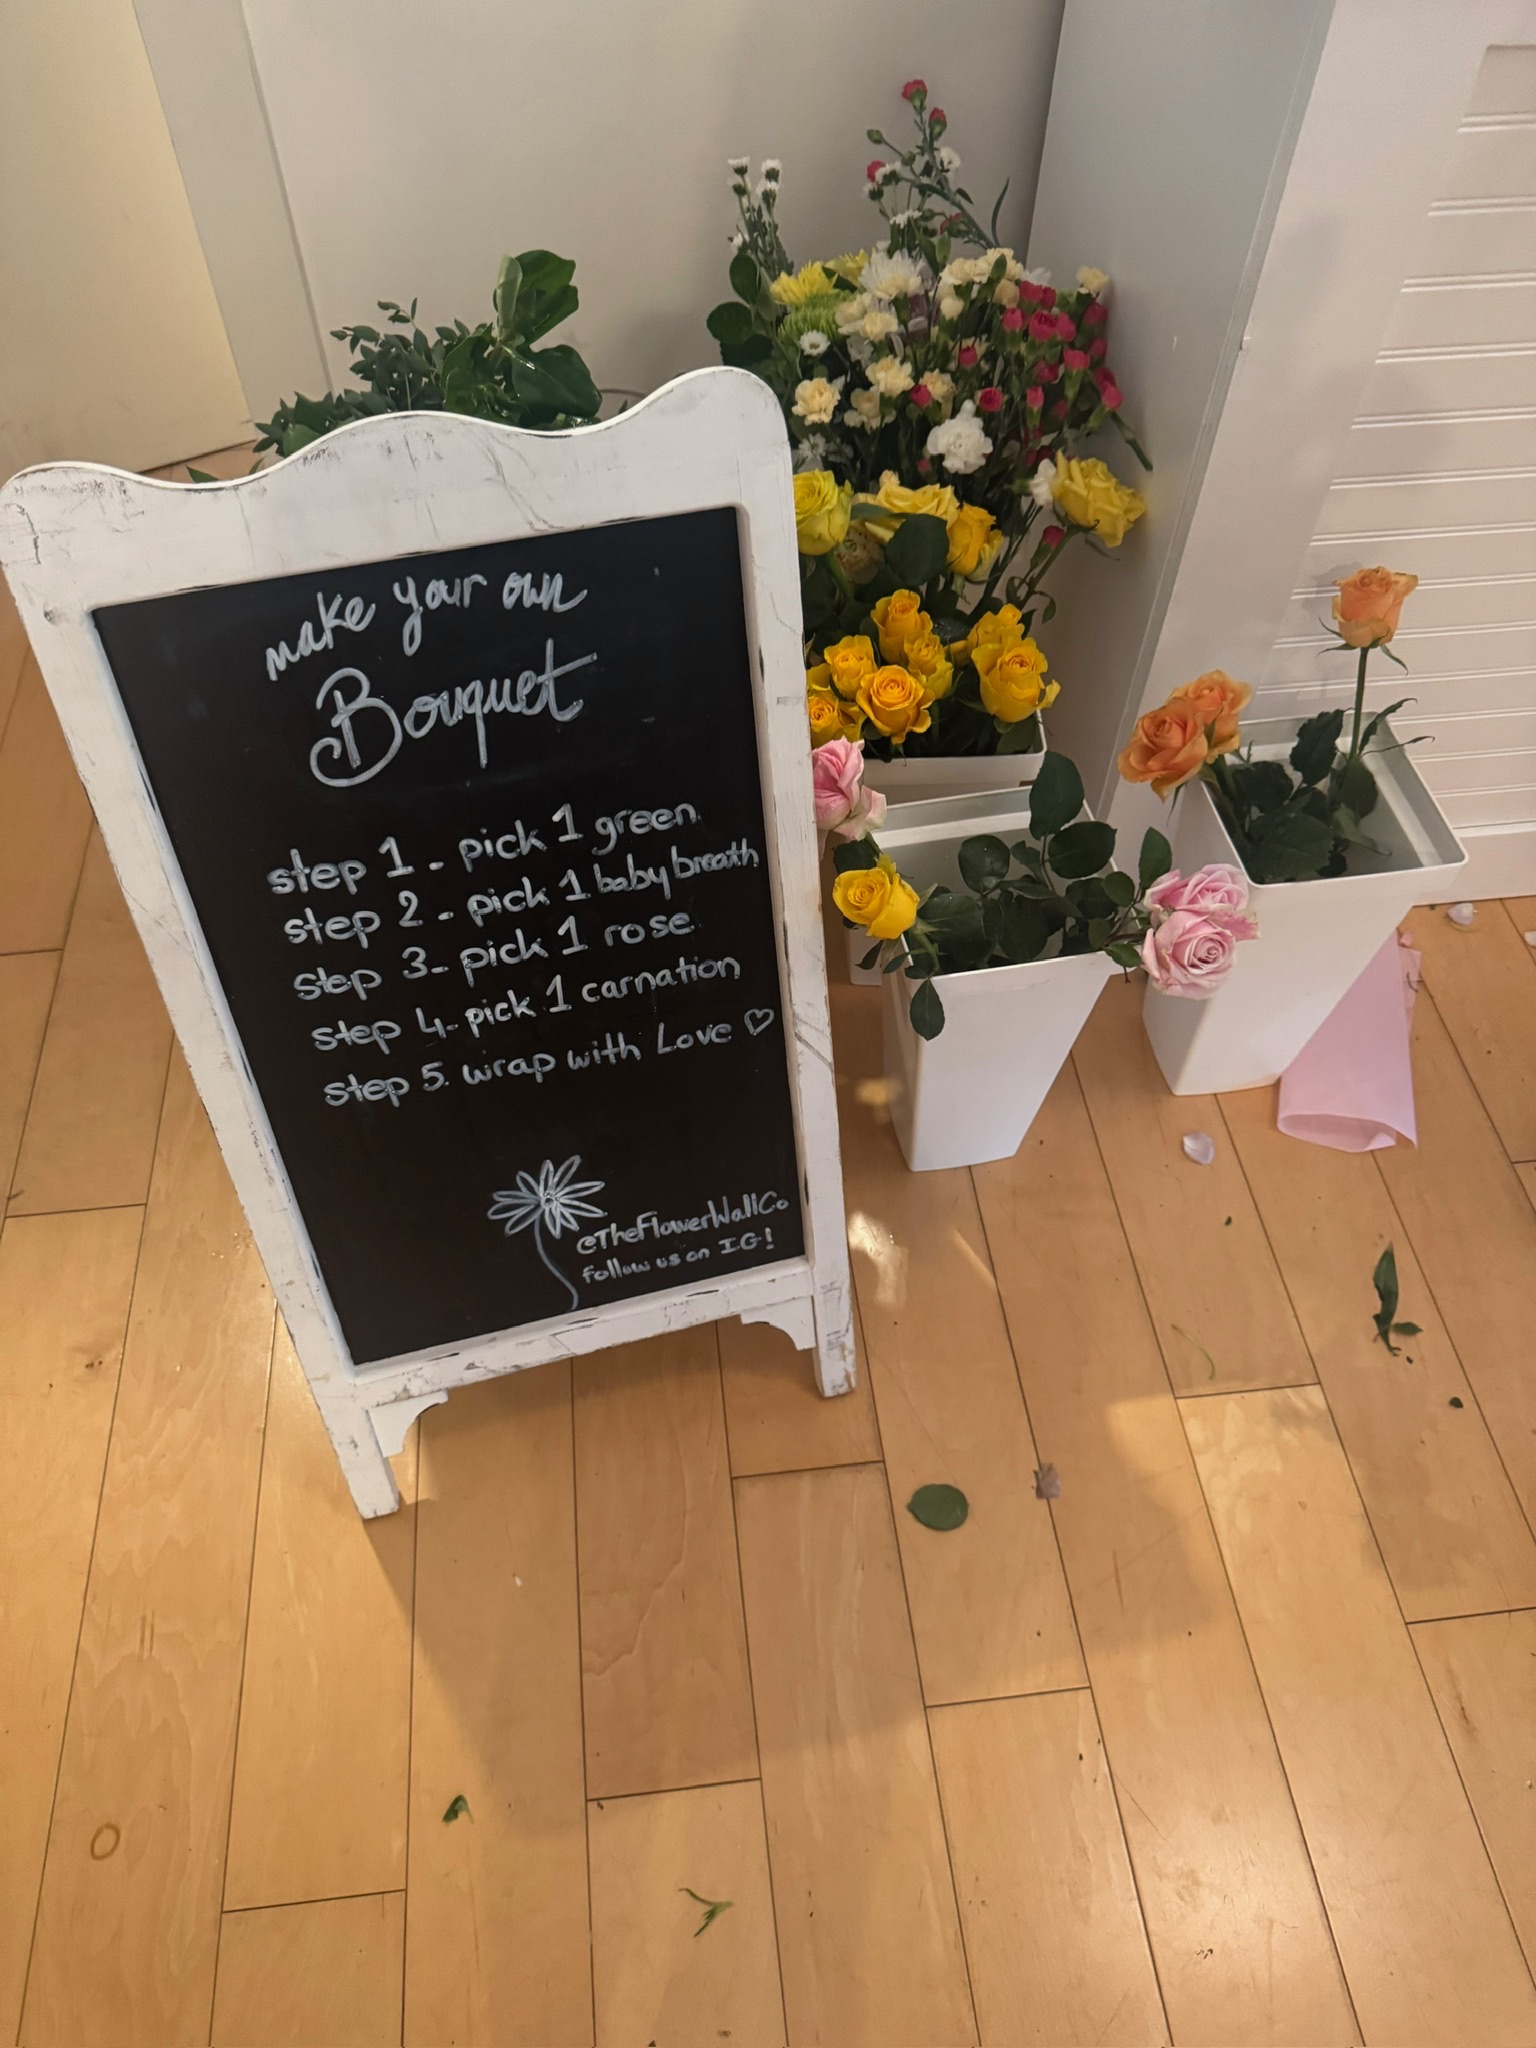 make your own
Bouquet
step 1 - pick 1 green
step 2 - pick 1 baby breath
step 3- pick 1 rose
step 4- pick 1 carnation
step 5. wrap with Love ♡
@TheFlowerWallCo
Follow us on IG!